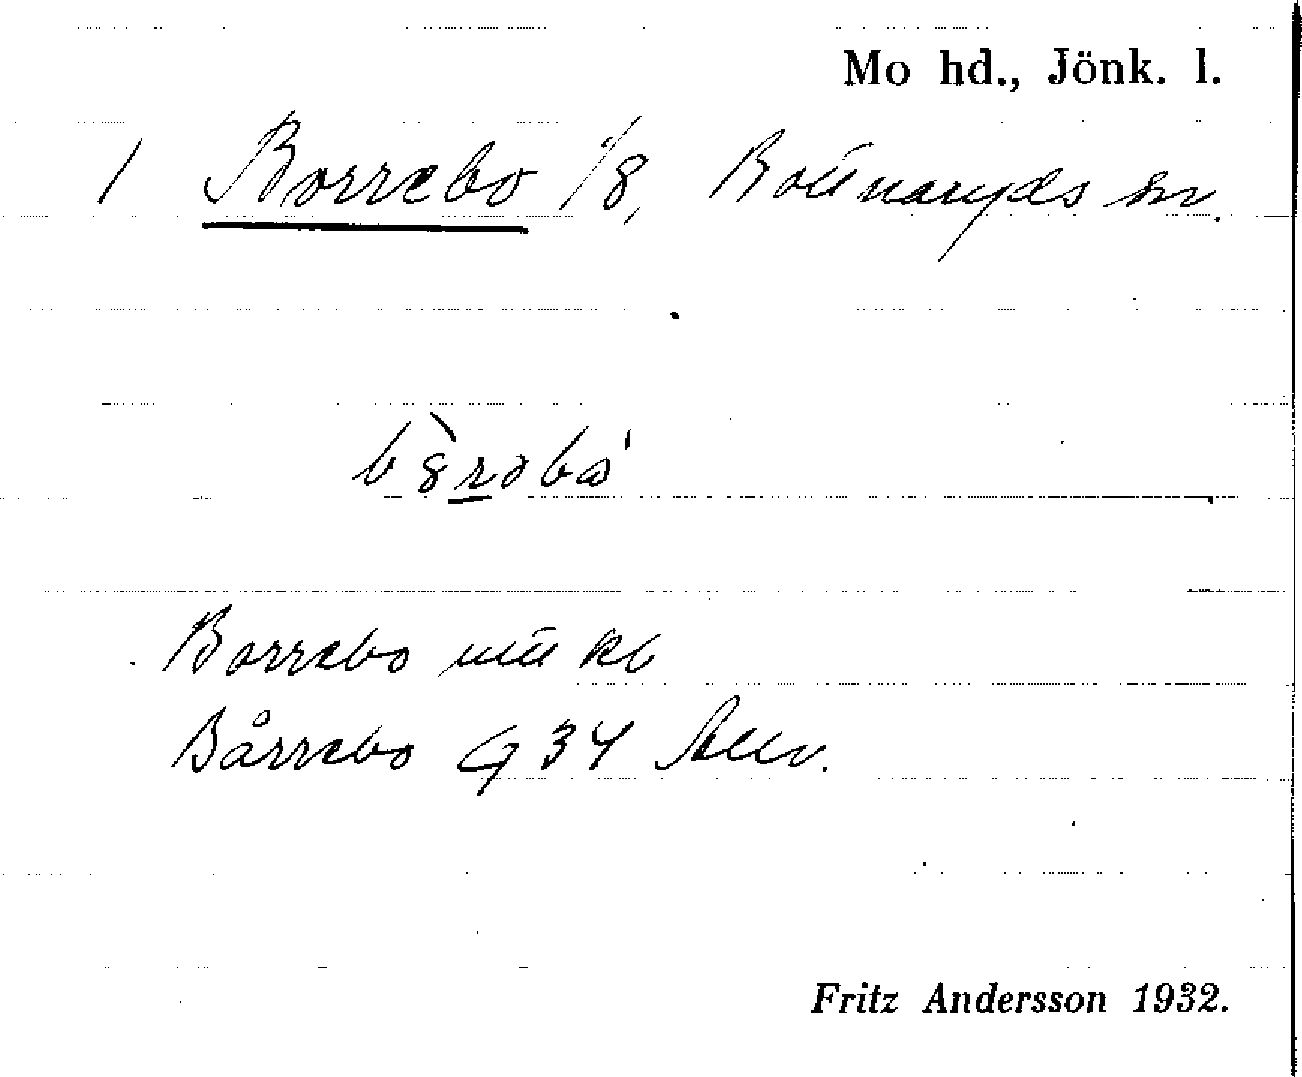 Mo hd., Jönk. l.
1 Borrebo 1/8, Bottnaryds sn.
Borrebo utt kb
Bårrebo G 34
Fritz Andersson 1932.